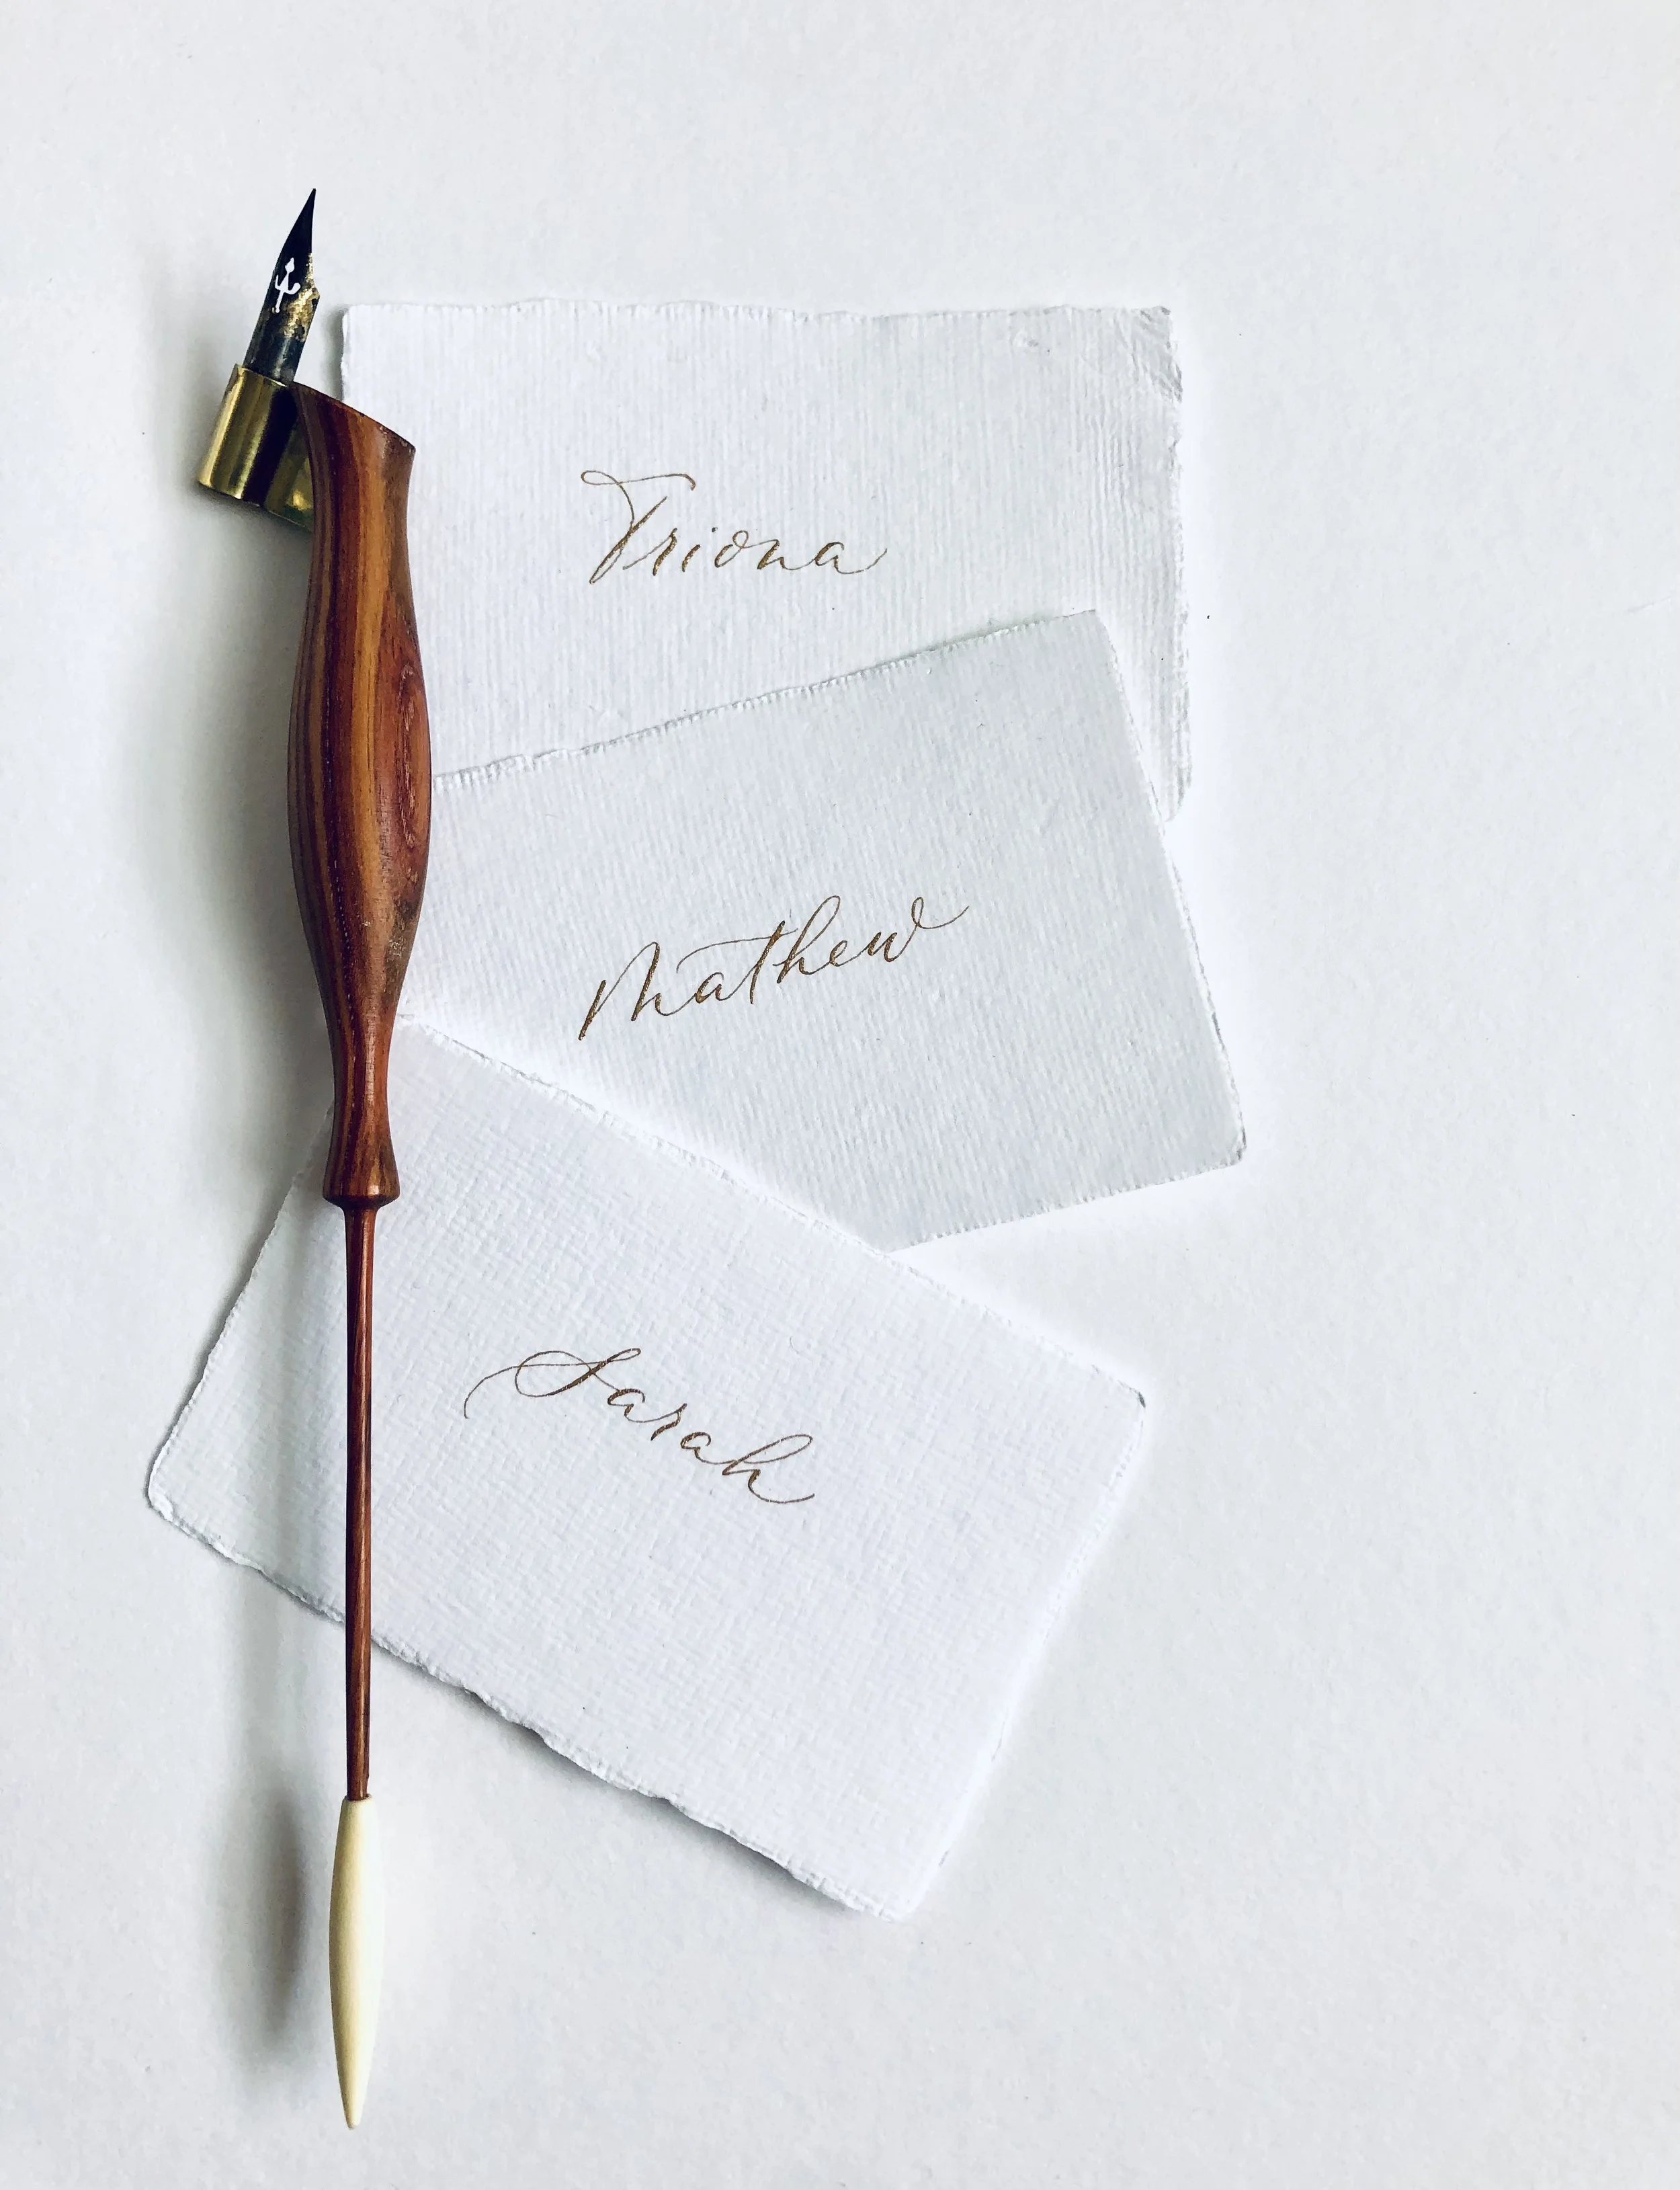 Triona
Mathew
Sarah